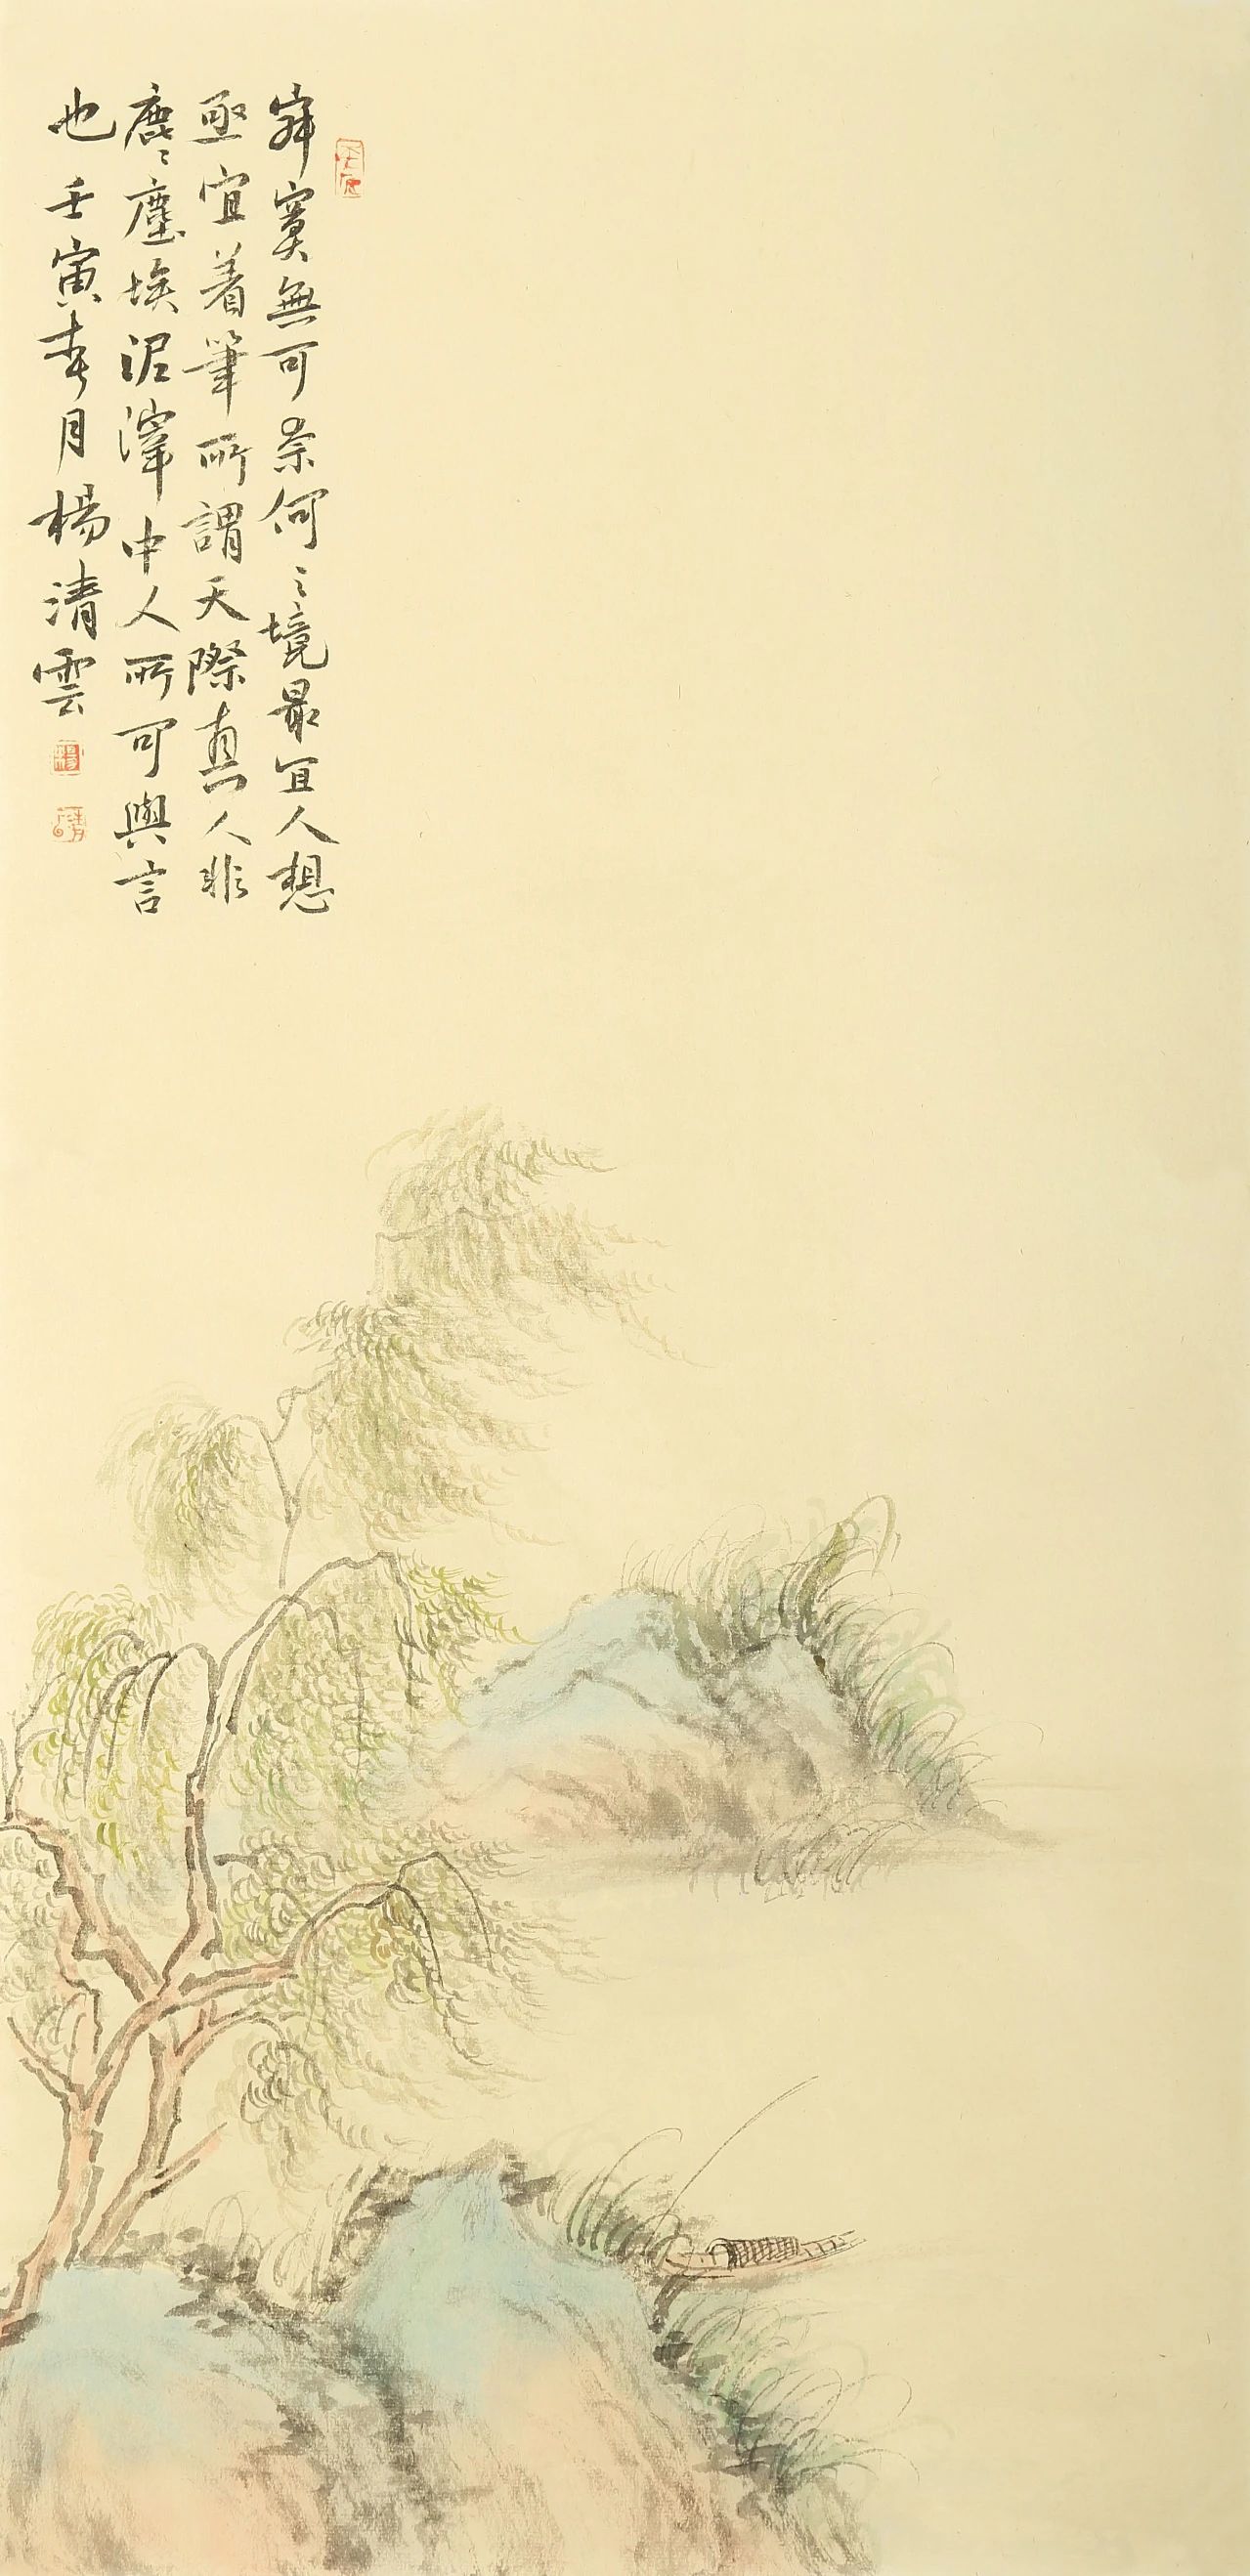 寂寞無可奈何之境最宜人想
亟宜着筆所謂天際真人非
鹿鹿塵埃泥滓中人所可與言
也壬寅春月楊清雲
楊